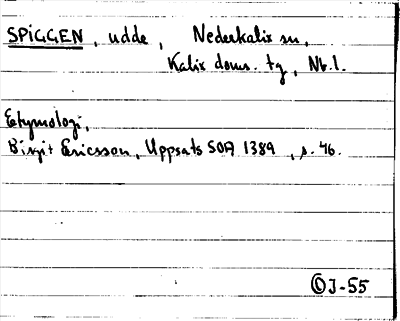 SPIGGEN, udde, Nederkalix sn,
Kalix doms. tg, Nb. l.
Etymologi,
Birgit Ericsson, Uppsats SOA 1389, s. 46.
© J-55